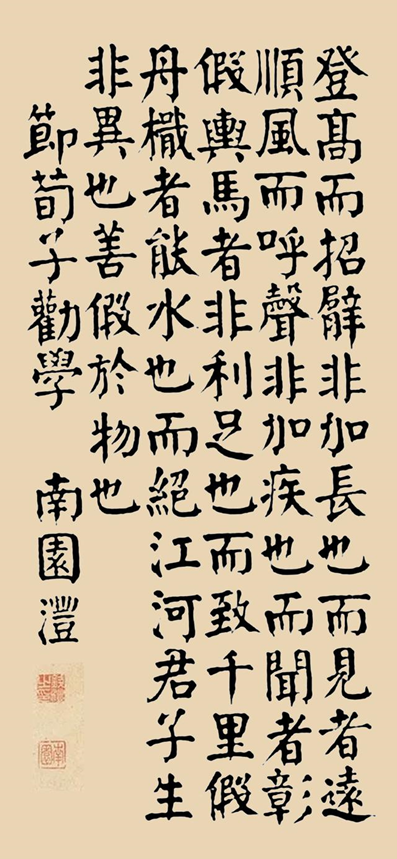 登髙而招臂非加長也而見者遠
順風而呼聲非加疾也而聞者彰
假輿馬者非利足也而致千里假
舟檝者能水也而絕江河君子生
非異也善假於物也
節荀子勸學 南園灃
南園